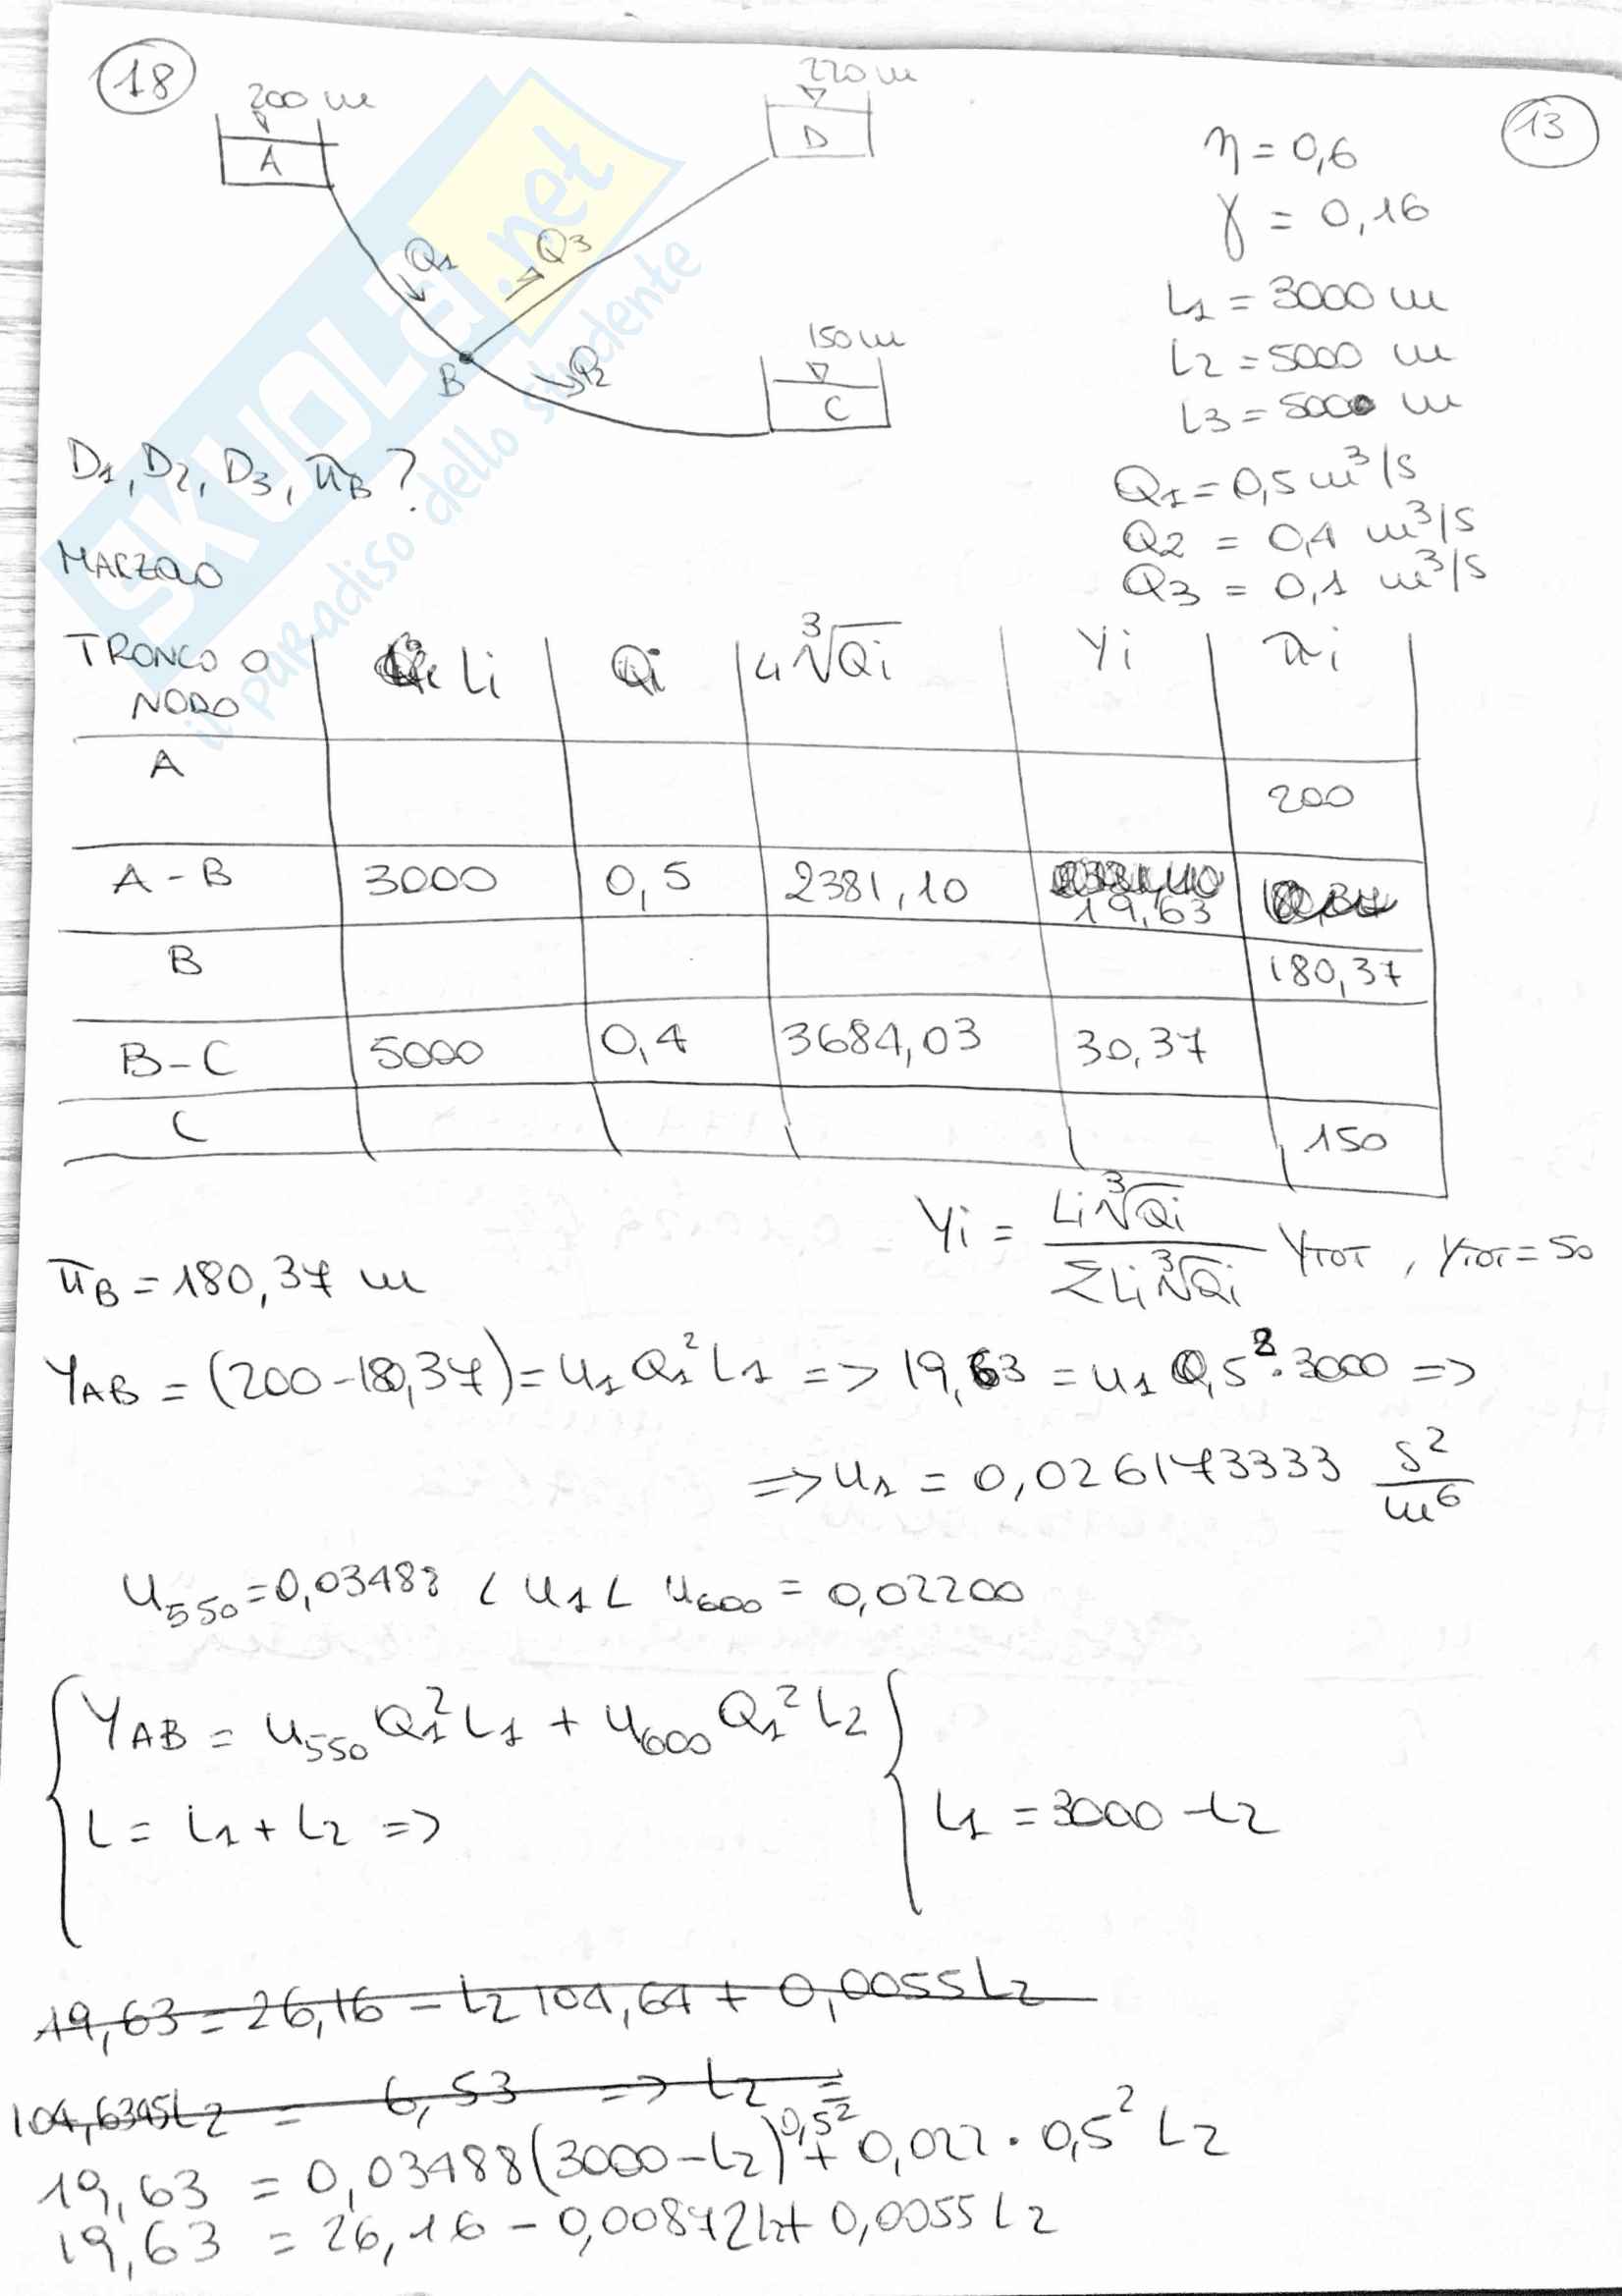 18
13
200 m
A
220 m
D
η = 0,6
γ = 0,16
Q1
Q3
L1 = 3000 m
L2 = 5000 m
L3 = 5000 m
150 m
C
B
Q2
D1, D2, D3, πB ?
Q1 = 0,5 m³/s
Q2 = 0,4 m³/s
Q3 = 0,1 m³/s
SKUOLA.net
il paradiso dello studente
TRONCO O NODO | Li | Qi | Li ∛Qi | Yi | πi
A | 200
A - B | 3000 | 0,5 | 2381,10 | 19,63
B | 180,37
B - C | 5000 | 0,4 | 3684,03 | 30,37
C | 150
Yi = Li∛Qi / ΣLi∛Qi YTOT , YTOT = 50
πB = 180,37 m
YAB = (200 - 180,37) = u1 Q1² L1 => 19,63 = u1 0,5² · 3000 =>
=> u1 = 0,026173333 s²/m⁶
u550 = 0,03488 < u1 < u600 = 0,02200
YAB = u550 Q1² L1 + u600 Q1² L2
L = L1 + L2 =>
L1 = 3000 - L2
19,63 = 26,16 - L2 104,64 + 0,0055 L2
104,6345 L2 = 6,53 => L2 =
19,63 = 0,03488 (3000 - L2) 0,5² + 0,022 · 0,5² L2
19,63 = 26,16 - 0,00872 L2 + 0,0055 L2